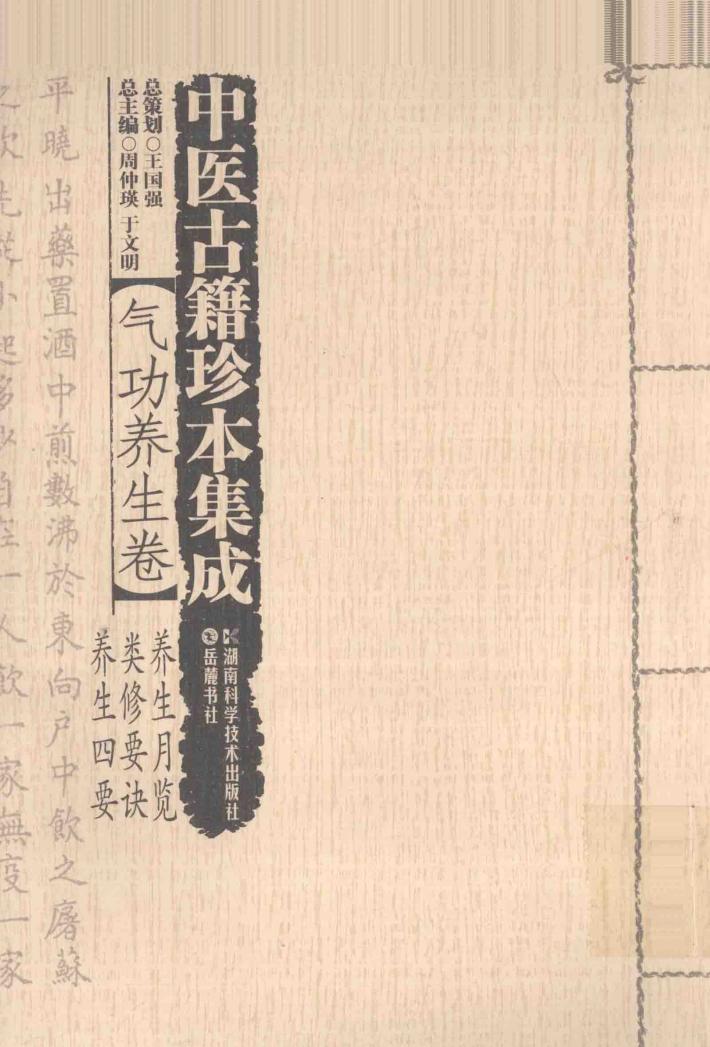 中医古籍珍本集成
湖南科学技术出版社
岳麓书社
总策划○王国强
总主编○周仲瑛 于文明
气功养生卷
养生月览
类修要诀
养生四要
平曉出藥置酒中煎數沸於東向户中飲之屠蘇
之飲先從小起多少自在一人飲一家無疫一家